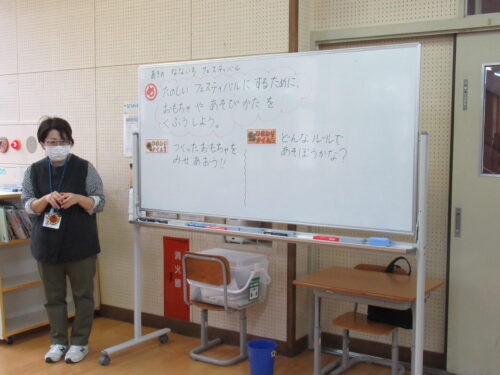 あきの なないろ フェスティバル
め たのしい フェスティバルに するために、
おもちゃ や あそびかた を
くふうしよう。
つくった おもちゃを
みせあおう!!
どんな ルールで
あそぼうかな?
消火器